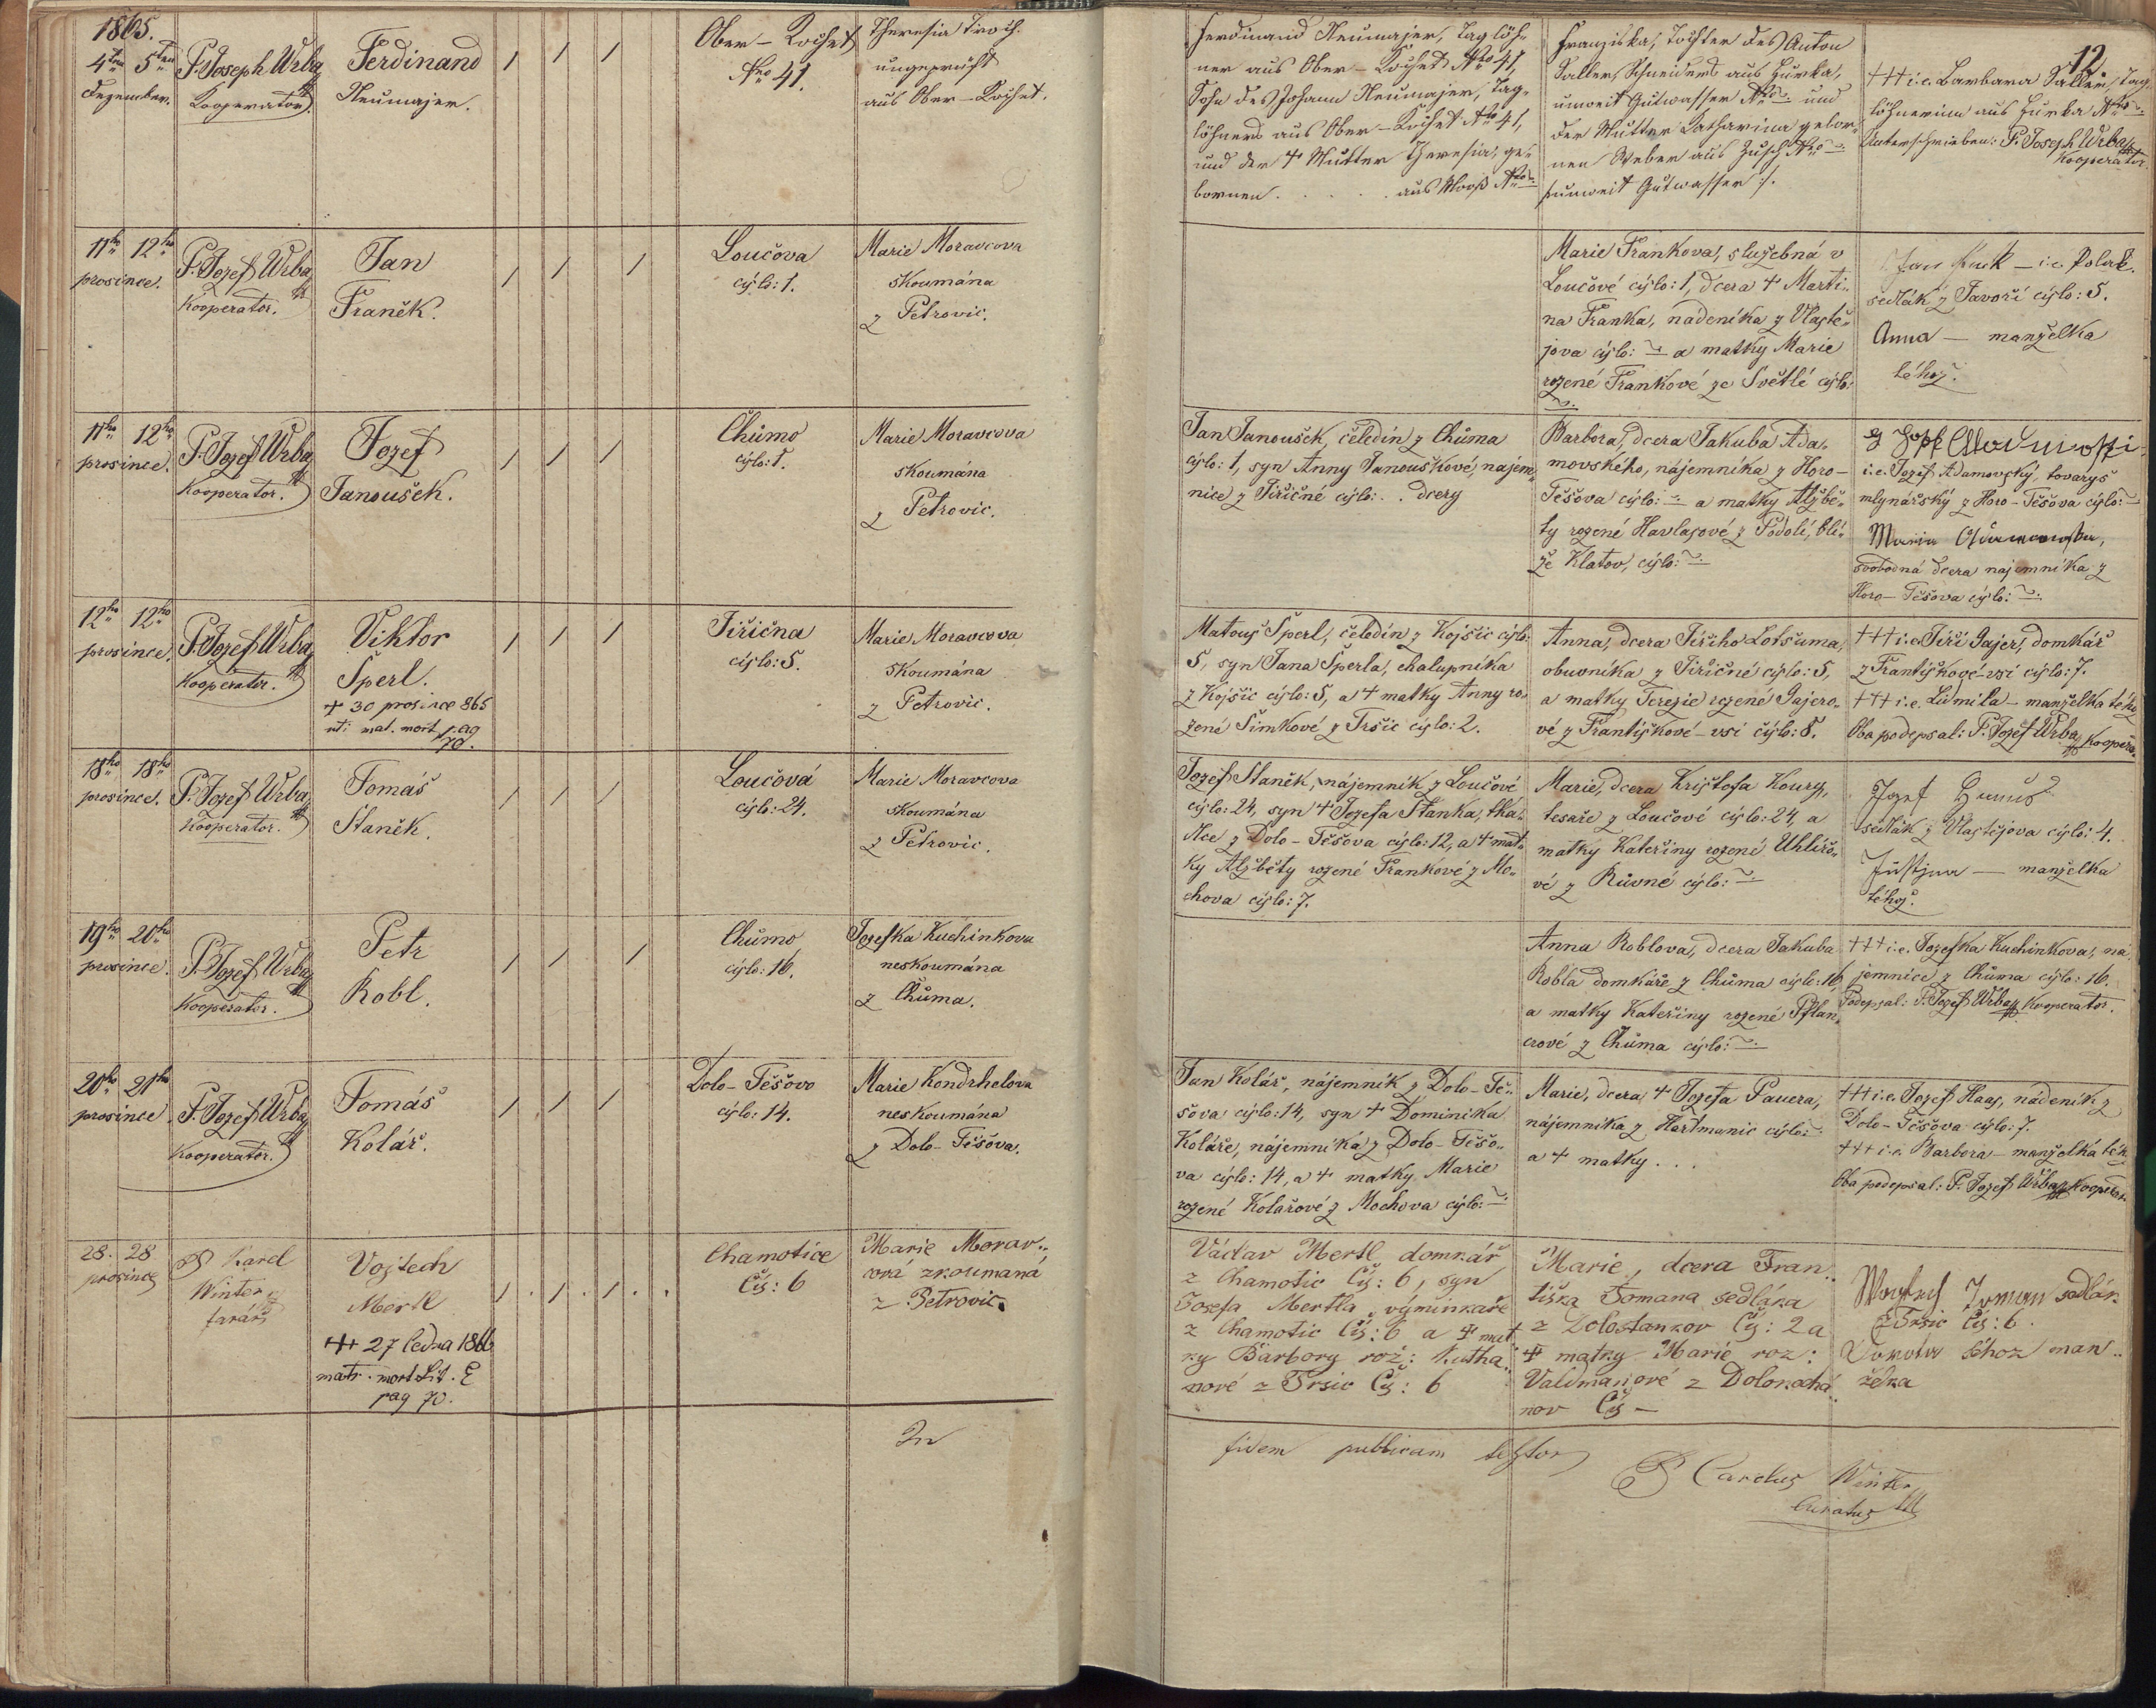 12
1865.
4ten 5ten
Dezember.
P. Joseph Wrba
Kooperator.
Ferdinand
Neumajer.
Ober-Kochet
Nro 41.
Theresia
ungeprüft
aus Ober-Kochet.
Ferdinand Neumajer, Taglöh-
ner aus Ober-Kochet Nro 41,
Sohn des Johann Neumajer, Tag-
löhners aus Ober-Kochet Nro 41,
und der + Mutter Theresia, ge-
bornen . . . . . aus Nro
Franziska, Tochter des Anton
Schneiders aus Hurka,
unweit Gutwasser Nro und
der Mutter Katharina gebor-
nen Weber aus Nro
unweit Gutwasser
+++ i.e. Barbara Tag-
löhnerinn aus Hurka Nro
Unterschrieben: P. Joseph Wrba
Kooperator
11ho 12ho
prosince.
P. Jozef Wrba
Kooperator.
Jan
Franěk.
Loučova
cýslo: 1.
Marie Moravcova
skoumána
z Petrovic.
Marie Frankova, služebná v
Loučové cýslo: 1, dcera + Marti-
na Franka, nádeníka z Vlastě-
jova cýslo: a matky Marie
rozené Frankové ze Světlé cýslo:
Jan — i.e. Polak.
sedlák z Javoří cýslo: 5.
Anna — manželka
téhož.
11ho 12ho
prosince.
P. Jozef Wrba
Kooperator.
Jozef
Janoušek.
Chúmo
cýslo: 1.
Marie Moravcova
skoumána
z Petrovic.
Jan Janoušek, čeledín z Chúma
cýslo: 1, syn Anny Janouškové, nájem-
nice z Jiřičné cýslo: . . dcery
Barbora, dcera Jakuba Ada-
movského, nájemníka z Horo-
Těšova cýslo: a matky Alžbě-
ty rozené Havlasové z Podolí, blí-
že Klatov, cýslo:
i.e. Jozef Adamovský, tovaryš
mlynářský z Horo-Těšova cýslo:
Maria
svobodná dcera najemníka z
Horo-Těšova cýslo:
12ho 12ho
prosince.
P. Jozef Wrba
Kooperator.
Viktor
Šperl.
+ 30 prosince 865
mat. mort pag
70.
Jiřična
cýslo: 5.
Marie Moravcova
skoumána
z Petrovic.
Matouš Šperl, čeledín z Kojšic cýslo:
5, syn Jana Šperla, chalupníka
z Kojšic cýslo: 5, a + matky Anny ro-
zené Šimkové z Tršic cýslo: 2.
Anna, dcera Jiřího Lotšuma,
obuvníka z Jiřičné cýslo: 5,
a matky Terezie rozené Gajero-
vé z Františkové-vsi čýslo: 8.
+++ i.e. Jiří Gajer, domkář
z Františkové-vsi cýslo: 7.
+++ i.e. Ludmila — manželka téhož
Oba podepsal: P. Jozef Wrba Kooperá.
18ho 18ho
prosince.
P. Jozef Wrba
Kooperator.
Tomáš
Staněk.
Loučová
cýslo: 24.
Marie Moravcova
skoumána
z Petrovic.
Jozef Staněk, nájemník z Loučové
cýslo: 24, syn + Jozefa Staňka, tka-
dlce z Dolo-Těšova cýslo: 12, a + mat-
ky Alžběty rozené Frankové z Mo-
chova cýslo: 7.
Marie, dcera Krištofa Koury,
tesaře z Loučové cýslo: 24, a
matky Kateřiny rozené Uhlířo-
vé z Růvné cýslo:
Jozef
sedlák z Vlastějova cýslo: 4.
Justýna — manželka
téhož.
19ho 20ho
prosince.
P. Jozef Wrba
Kooperator.
Petr
Robl.
Chúmo
cýslo: 16.
Jozefka Kuchinkova
neskoumána
z Chúma.
Anna Roblova, dcera Jakuba
Robla domkáře z Chúma cýslo: 16
a matky Kateřiny rozené Pflan-
crové z Chúma cýslo:
+++ i.e. Jozefka Kuchinkova, ná-
jemnice z Chúma cýslo: 16.
Podepsal: P. Jozef Wrba Kooperator.
20ho 21ho
prosince
P. Jozef Wrba
Kooperator.
Tomáš
Kolář.
Dolo-Těšovo
cýslo: 14.
Marie Kondrhelova
neskoumána
z Dolo-Těšova.
Jan Kolář, nájemník z Dolo-Tě-
šova cýslo: 14, syn + Dominika
Koláře, nájemníka z Dolo-Těšo-
va cýslo: 14, a + matky Marie
rozené Kolářové z Mochova cýslo:
Marie, dcera + Jozefa Pauera,
nájemníka z Hartmanic cýslo:
a + matky . . .
+++ i.e. Jozef Haas, nádeník z
Dolo-Těšova cýslo: 7.
+++ i.e. Barbora — manželka téh.
Oba podepsal: P. Jozef Wrba Kooperator.
28. 28
prosince
P Karel
Winter
farář
Vojtech
Mertl
++ 27 ledna 1866
matr. mort Lit. E
pag 70.
Chamotice
Čís: 6
Marie Morav-
cová zkoumaná
z Petrovic.
Václav Mertl domkář
z Chamotic Čís: 6, syn
Josefa Mertla, výminkáře
z Chamotic Čís: 6 a + mat
ky Barbory roz:
nové z Tršic Čís: 6
Marie, dcera Fran-
tiška Tomana sedláka
z Dolostankov Čís: 2 a
+ matky Marie roz:
Valdmanové z Dolokochá-
nov Čís —
Toman sedlák
z Tršic Čís: 6.
téhož man-
želka
In
fidem publicam testor
P Carolus Winter
Curatus